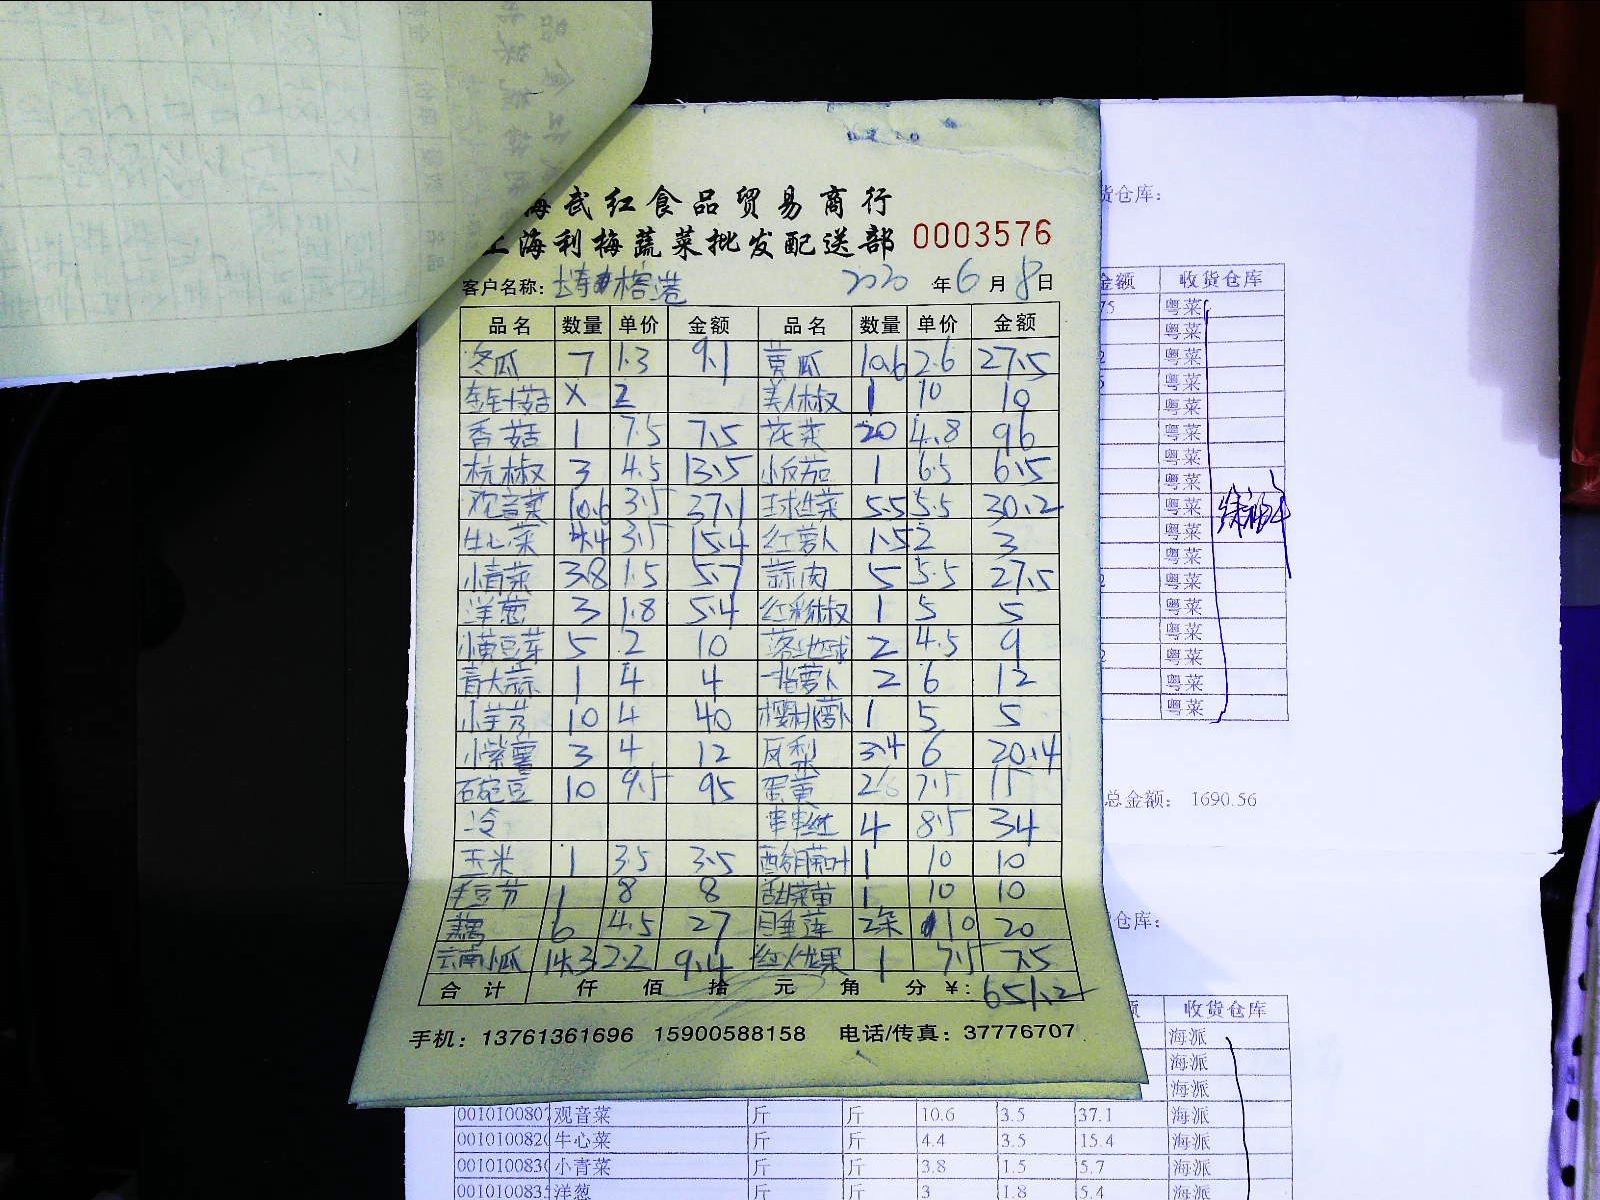 海武红食品贸易商行
上海利梅蔬菜批发配送部 0003576
客户名称： 2020 年 6 月 8 日
品名 数量 单价 金额 品名 数量 单价 金额
冬瓜 7 1.3 9.1 黄瓜 10.6 2.6 27.5
金针菇 X 2 美人椒 1 10 10
香菇 1 7.5 7.5 花菜 20 4.8 96
杭椒 3 4.5 13.5 1 6.5 6.5
观音菜 10.6 3.5 37.1 球生菜 5.5 5.5 30.2
牛心菜 4.4 3.5 15.4 红萝卜 1.5 2 3
小青菜 3.8 1.5 5.7 蒜肉 5 5.5 27.5
洋葱 3 1.8 5.4 红彩椒 1 5 5
小黄豆芽 5 2 10 落地球 2 4.5 9
青大蒜 1 4 4 一指萝卜 2 6 12
小芋艿 10 4 40 樱桃萝卜 1 5 5
小紫薯 3 4 12 凤梨 3.4 6 20.4
石豌豆 10 9.5 95 蛋黄 2 7.5 15
冷 串串红 4 8.5 34
玉米 1 3.5 3.5 1 10 10
毛豆节 1 8 8 甜菜苗 1 10 10
藕 6 4.5 27 睡莲 2朵 10 20
云南小瓜 14.3 2.2 9.4 1 7.5 7.5
合计 仟 佰 拾 元 角 分 ¥: 651.2
手机：13761361696 15900588158 电话/传真：37776707
货仓库：
金额 收货仓库
75 粤菜
粤菜
2 粤菜
5 粤菜
粤菜
粤菜
粤菜
粤菜
粤菜
粤菜
粤菜
2 粤菜
粤菜
粤菜
2 粤菜
粤菜
粤菜
总金额： 1690.56
仓库：
额 收货仓库
海派
海派
海派
00101008 观音菜 斤 斤 10.6 3.5 37.1 海派
00101008 牛心菜 斤 斤 4.4 3.5 15.4 海派
00101008 小青菜 斤 斤 3.8 1.5 5.7 海派
00101008 洋葱 斤 斤 3 1.8 5.4 海派